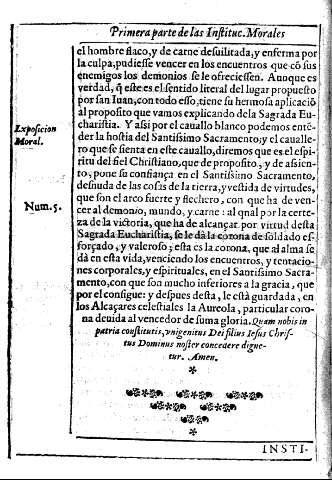 Primera parte de las Instituc. Morales
el hombre flaco, y de carne desuilitada, y enferma por
la culpa, pudiesse vencer en los encuentros que cō sus
enemigos los demonios se le ofreciessen. Aunque es
verdad, q̃ este es el sentido literal del lugar propuesto
por san Iuan, con todo esso, tiene su hermosa aplicaciō
al proposito que vamos explicando de la Sagrada Eu-
charistia. Y assi por el cauallo blanco podemos entē-
der la hostia del Santissimo Sacramento; y el caualle-
ro que se sienta en este cauallo, diremos que es el espi-
ritu del fiel Christiano, que de proposito, y de assien-
to, pone su confiança en el Santissimo Sacramento,
desnuda de las cosas de la tierra, y vestida de virtudes,
que son el arco fuerte y flechero, con que ha de ven-
cer al demonio, mundo, y carne: al qual por la certe-
za de la victoria, que ha de alcançar por virtud desta
Sagrada Eucharistia, se le dà la corona de soldado es-
forçado, y valeroso; esta es la corona, que al alma se
dà en esta vida, venciendo los encuentros, y tentacio-
nes corporales, y espirituales, en el Santissimo Sacra-
mento, con que son mucho inferiores a la gracia, que
por el consigue: y despues desta, le està guardada, en
los Alcaçares celestiales la Aureola, particular coro-
na deuida al vencedor de suma gloria. Quam nobis in
patria constitutis, vnigenitus Dei filius Iesus Chris-
tus Dominus noster concedere digne-
tur. Amen.
Exposicion
Moral.
Num. 5.
INSTI-